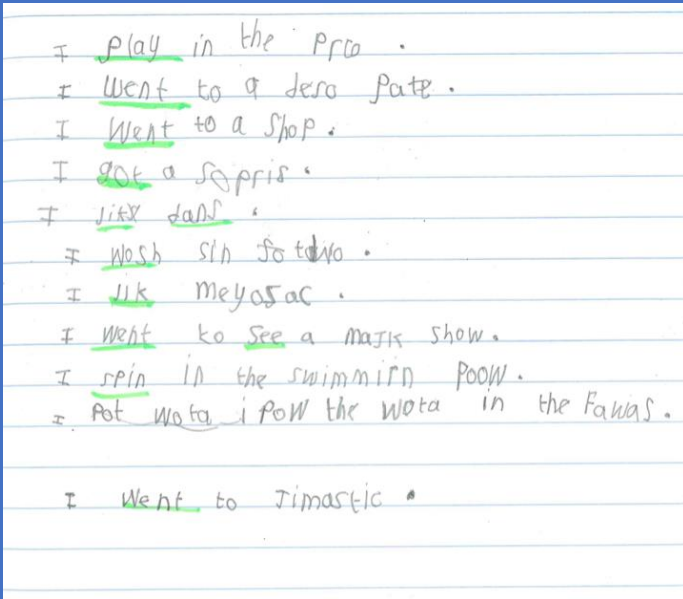 I play in the prco .
I went to a desa Pate .
I Went to a shop .
I got a sopris .
I likx dans .
I wosh sin fo towo .
I lik meyosac .
I went to see a majik show .
I spin in the swimmirn poow .
I Pot wota i pow the wota in the Fawas .
I Went to Jimastic .